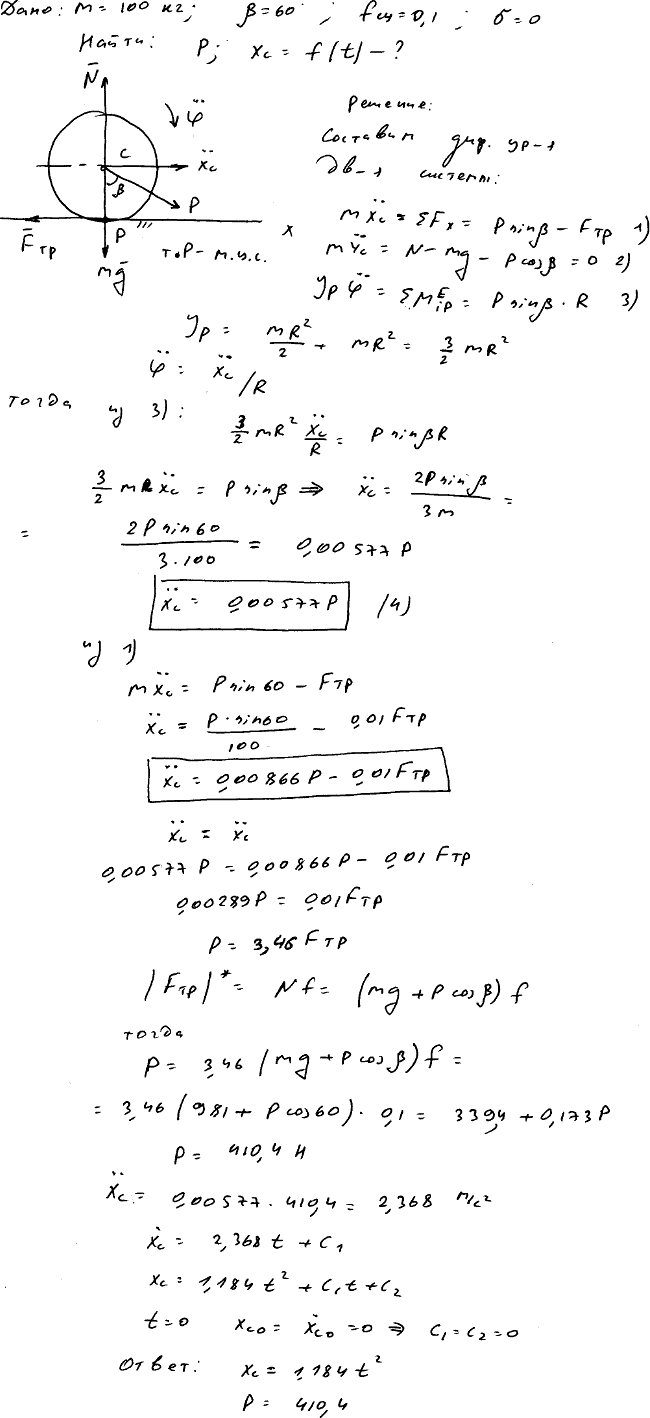 Дано: m = 100 кг; β = 60°; fсц = 0,1; δ = 0
Найти: P; xc = f(t) - ?
N̄
φ̈
C
ẍc
β
P
F̄тр
P
x
mḡ
т.P - м.ц.с.
Решение:
Составим диф. ур-я
дв-я системы:
mẍc = ΣFx = P sinβ - Fтр 1)
mÿc = N - mg - P cosβ = 0 2)
Jp φ̈ = ΣM^E_ip = P sinβ · R 3)
Jp = mR²/2 + mR² = 3/2 mR²
φ̈ = ẍc/R
тогда из 3):
3/2 mR² ẍc/R = P sinβR
3/2 mRẍc = P sinβ ⇒ ẍc = 2P sinβ/3m =
= 2P sin60/3·100 = 0,00577 P
ẍc = 0,00577P (4)
из 1)
mẍc = P sin60 - Fтр
ẍc = P·sin60/100 - 0,01Fтр
ẍc = 0,00866P - 0,01Fтр
ẍc = ẍc
0,00577P = 0,00866P - 0,01Fтр
0,00289P = 0,01Fтр
P = 3,46 Fтр
|Fтр|* = Nf = (mg + P cosβ) f
тогда
P = 3,46 (mg + P cosβ) f =
= 3,46 (981 + P cos60) · 0,1 = 339,4 + 0,173P
P = 410,4 Н
ẍc = 0,00577 · 410,4 = 2,368 м/с²
ẋc = 2,368 t + C₁
xc = 1,184 t² + C₁t + C₂
t = 0 xc0 = ẋc0 = 0 ⇒ C₁ = C₂ = 0
Ответ: xc = 1,184 t²
P = 410,4